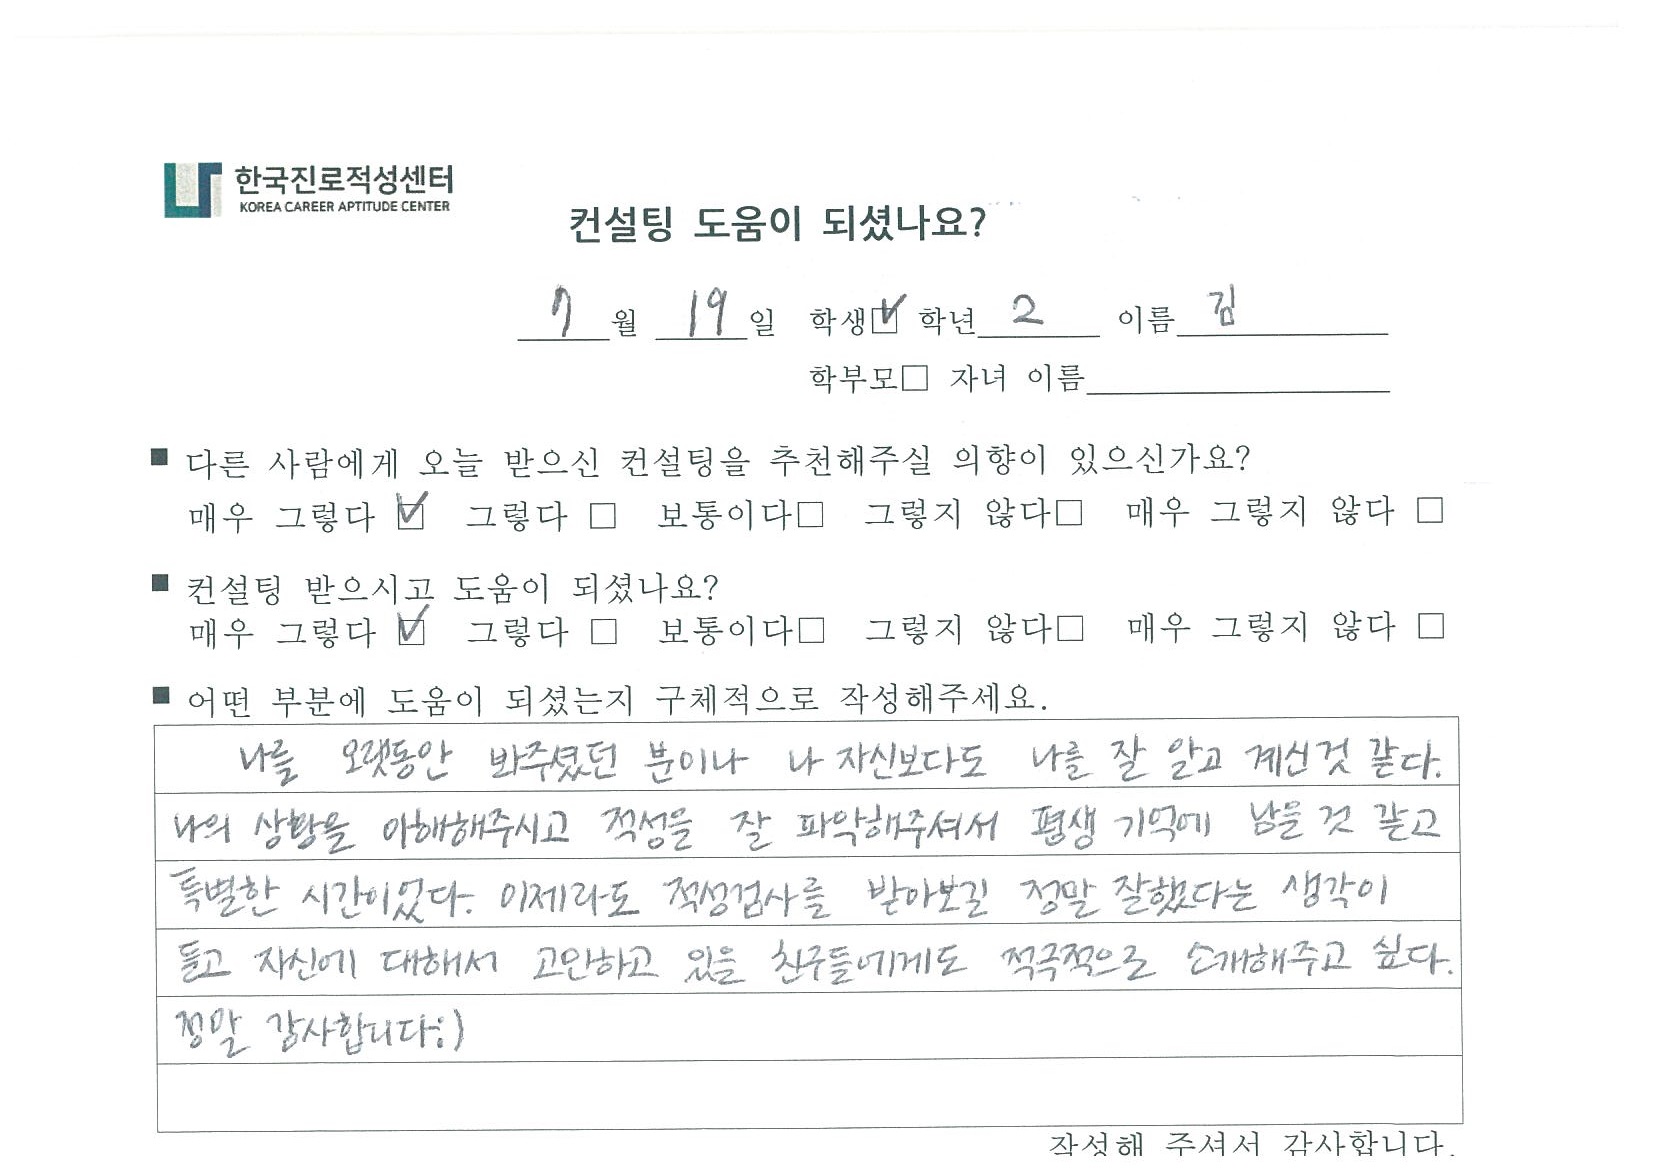 한국진로적성센터
KOREA CAREER APTITUDE CENTER
컨설팅 도움이 되셨나요?
7월 19일 학생☑ 학년 2 이름 김
학부모□ 자녀 이름
■ 다른 사람에게 오늘 받으신 컨설팅을 추천해주실 의향이 있으신가요?
매우 그렇다 ☑ 그렇다 □ 보통이다□ 그렇지 않다□ 매우 그렇지 않다 □
■ 컨설팅 받으시고 도움이 되셨나요?
매우 그렇다 ☑ 그렇다 □ 보통이다□ 그렇지 않다□ 매우 그렇지 않다 □
■ 어떤 부분에 도움이 되셨는지 구체적으로 작성해주세요.
나를 오랫동안 봐주셨던 분이나 나 자신보다도 나를 잘 알고 계신것 같다.
나의 상황을 이해해주시고 적성을 잘 파악해주셔서 평생 기억에 남을 것 같고
특별한 시간이었다. 이제라도 적성검사를 받아보길 정말 잘했다는 생각이
들고 자신에 대해서 고민하고 있을 친구들에게도 적극적으로 소개해주고 싶다.
정말 감사합니다:)
작성해 주셔서 감사합니다.